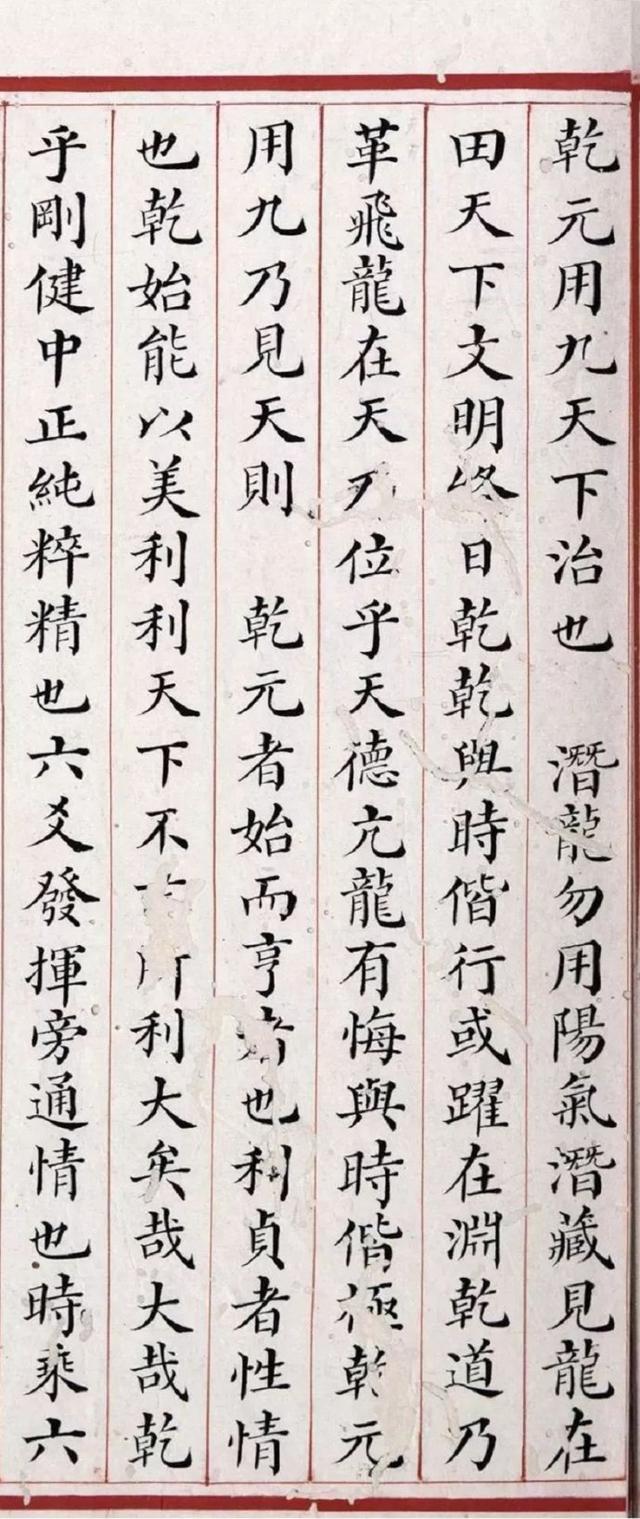 乾元用九天下治也　潛龍勿用陽氣潛藏見龍在
田天下文明終日乾乾與時偕行或躍在淵乾道乃
革飛龍在天乃位乎天德亢龍有悔與時偕極乾元
用九乃見天則　乾元者始而亨者也利貞者性情
也乾始能以美利利天下不利大矣哉大哉乾
乎剛健中正純粹精也六爻發揮旁通情也時乘六